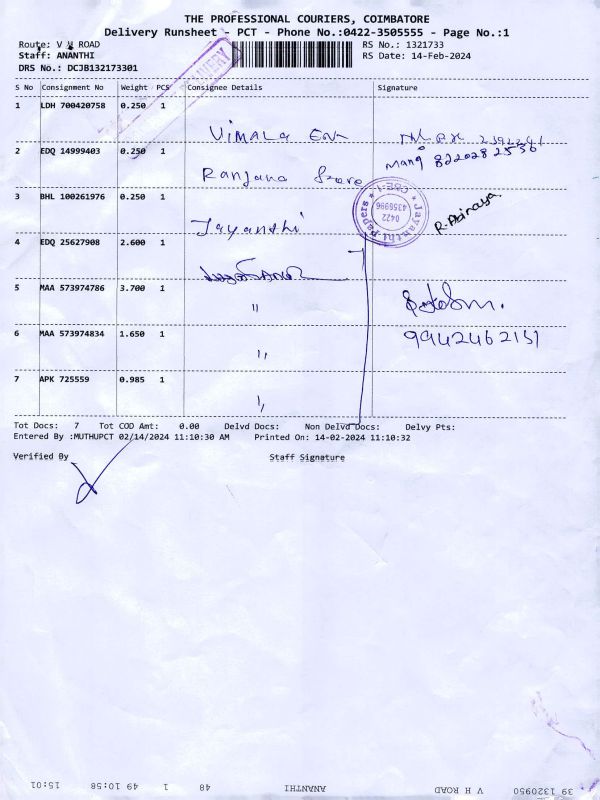 THE PROFESSIONAL COURIERS, COIMBATORE
Delivery Runsheet - PCT - Phone No.:0422-3505555 - Page No.:1
Route: V H ROAD
RS No.: 1321733
Staff: ANANTHI
RS Date: 14-Feb-2024
DRS No.: DCJB132173301
DELIVERY
S No Consignment No Weight PCS Consignee Details Signature
1 LDH 700420758 0.250 1 Vimala
2 EDQ 14999403 0.250 1 Ranjana Store
8220282536
3 BHL 100261976 0.250 1 Jayanthi
Jayanthi Papers
0422
4356996
CBE-1
R. Abinaya
4 EDQ 25627908 2.600 1
5 MAA 573974786 3.700 1 "
6 MAA 573974834 1.650 1 "
9942462151
7 APK 725559 0.985 1 "
Tot Docs: 7 Tot COD Amt: 0.00 Delvd Docs: Non Delvd Docs: Delvy Pts:
Entered By :MUTHUPCT 02/14/2024 11:10:30 AM Printed On: 14-02-2024 11:10:32
Verified By Staff Signature
39 1320950 V H ROAD ANANTHI 48 1 49 10:58 15:01